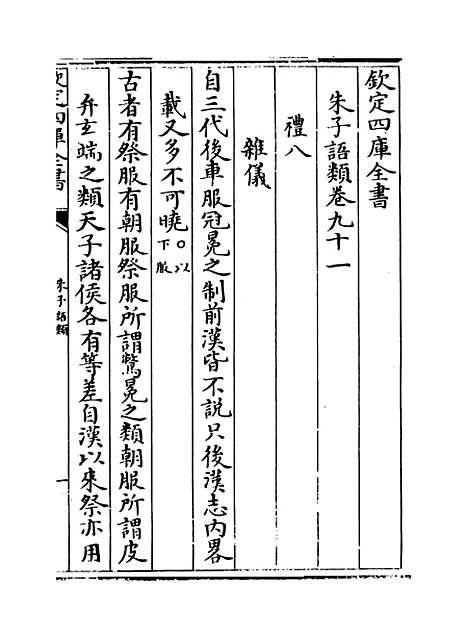 欽定四庫全書
朱子語類卷九十一
禮八
雜儀
自三代後車服冠冕之制前漢皆不説只後漢志内畧
載又多不可曉○以下服
古者有祭服有朝服祭服所謂鷩冕之類朝服所謂皮
弁玄端之類天子諸侯各有等差自漢以來祭亦用
欽定四庫全書
朱子語類
一